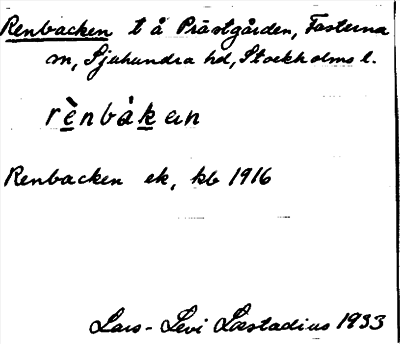 Renbacken t å Prästgården, Fasterna
sn, Sjuhundra hd, Stockholms l.
rènbàkan
Renbacken ek, kb 1916
Lars-Levi Læstadius 1933